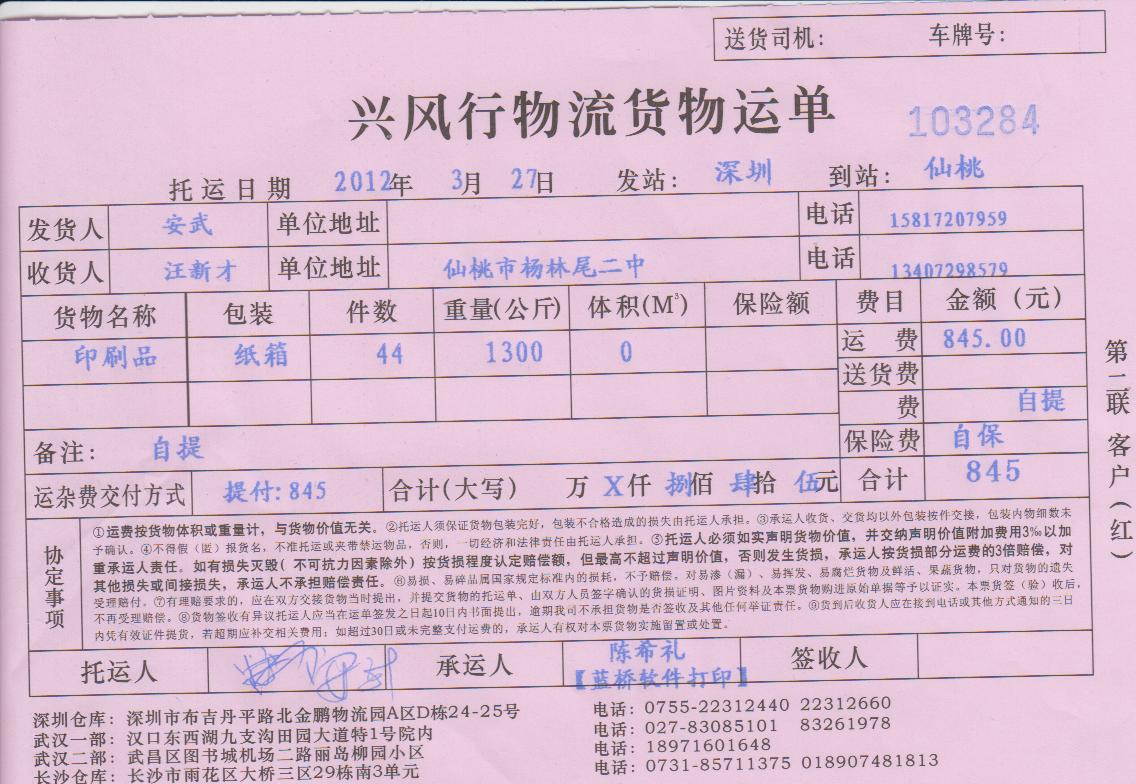 送货司机： 车牌号：
兴风行物流货物运单 103284
托运日期 2012年 3月 27日 发站： 深圳 到站： 仙桃
发货人 安武 单位地址 电话 15817207959
收货人 汪新才 单位地址 仙桃市杨林尾二中 电话 13407298579
货物名称 包装 件数 重量(公斤) 体积(M³) 保险额 费目 金额（元）
印刷品 纸箱 44 1300 0 运 费 845.00
送货费
费 自提
备注： 自提 保险费 自保
运杂费交付方式 提付:845 合计(大写) 万 X仟 捌佰 肆拾 伍元 合计 845
协定事项
①运费按货物体积或重量计，与货物价值无关。②托运人须保证货物包装完好，包装不合格造成的损失由托运人承担。③承运人收货、交货均以外包装按件交接，包装内物细数未
予确认。④不得假（匿）报货名，不准托运或夹带禁运物品，否则，一切经济和法律责任由托运人承担。⑤托运人必须如实声明货物价值，并交纳声明价值附加费用3‰以加
重承运人责任。如有损失灭毁（不可抗力因素除外）按货损程度认定赔偿额，但最高不超过声明价值，否则发生货损，承运人按货损部分运费的3倍赔偿，对
其他损失或间接损失，承运人不承担赔偿责任。⑥易损、易碎品属国家规定标准内的损耗，不予赔偿。对易渗（漏）、易挥发、易腐烂货物及鲜活、果蔬货物，只对货物的遗失
受理赔付。⑦有理赔要求的，应在双方交接货物当时提出，并提交货物的托运单、由双方人员签字确认的货损证明、图片资料及本票货物购进原始单据等予以证实。本票货签（验）收后，
不再受理赔偿。⑧货物签收有异议托运人应当在运单签发之日起10日内书面提出，逾期我司不承担货物是否签收及其他任何举证责任。⑨货到后收货人应在接到电话或其他方式通知的三日
内凭有效证件提货，若超期应补交相关费用；如超过30日或未完整支付运费的，承运人有权对本票货物实施留置或处置。
托运人 承运人 陈希礼 签收人
【蓝桥软件打印】
第二联 客户(红)
深圳仓库：深圳市布吉丹平路北金鹏物流园A区D栋24-25号 电话：0755-22312440 22312660
武汉一部：汉口东西湖九支沟田园大道特1号院内 电话：027-83085101 83261978
武汉二部：武昌区图书城机场二路丽岛柳园小区 电话：18971601648
长沙仓库：长沙市雨花区大桥三区29栋南3单元 电话：0731-85711375 018907481813